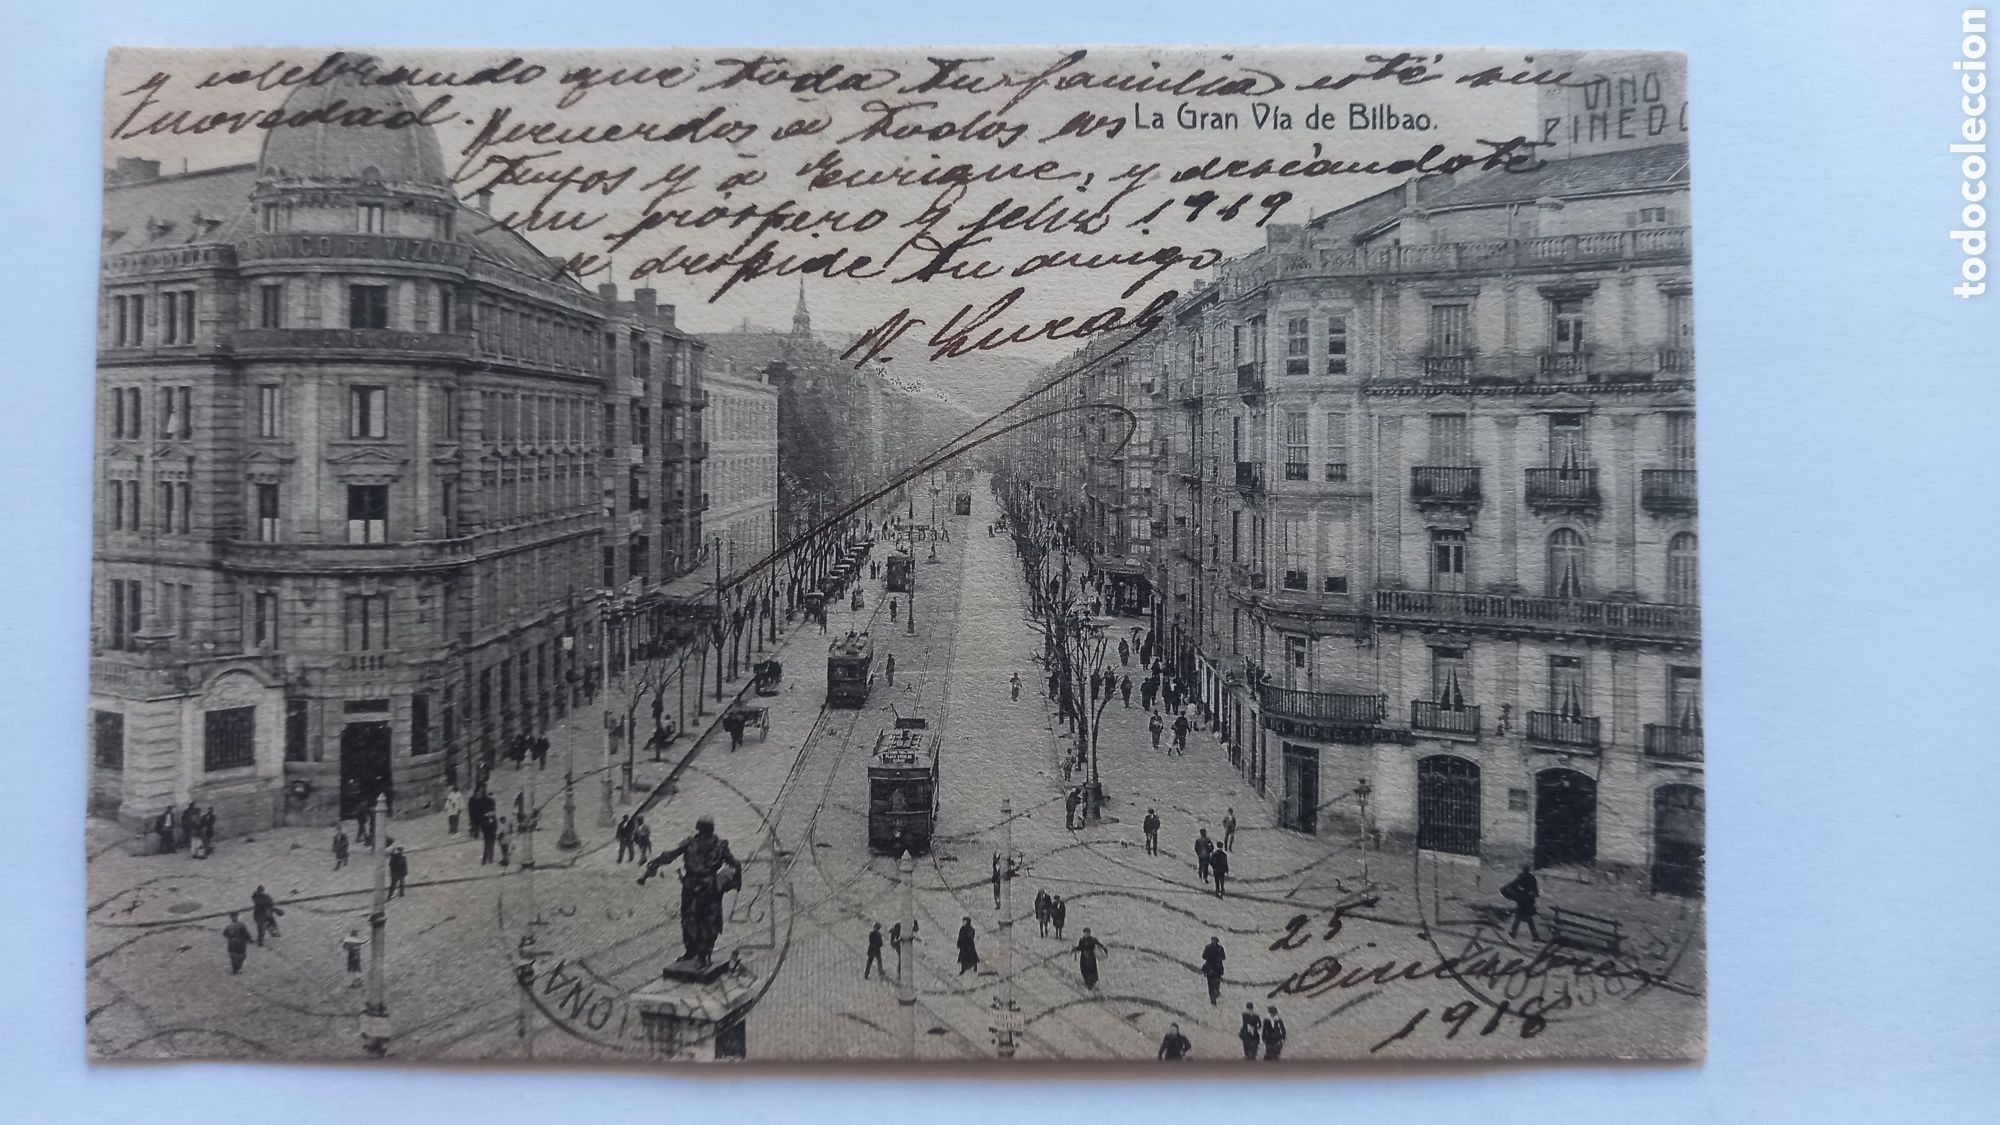 y celebrando que toda tu familia esté sin
novedad.
Recuerdos a todos los
tuyos y a Enrique, y deseándote
un próspero y feliz 1919
se despide tu amigo
N.
La Gran Vía de Bilbao.
VINO
PINEDO
BANCO DE VIZCAYA
BARCELONA
25
1918
todocoleccion